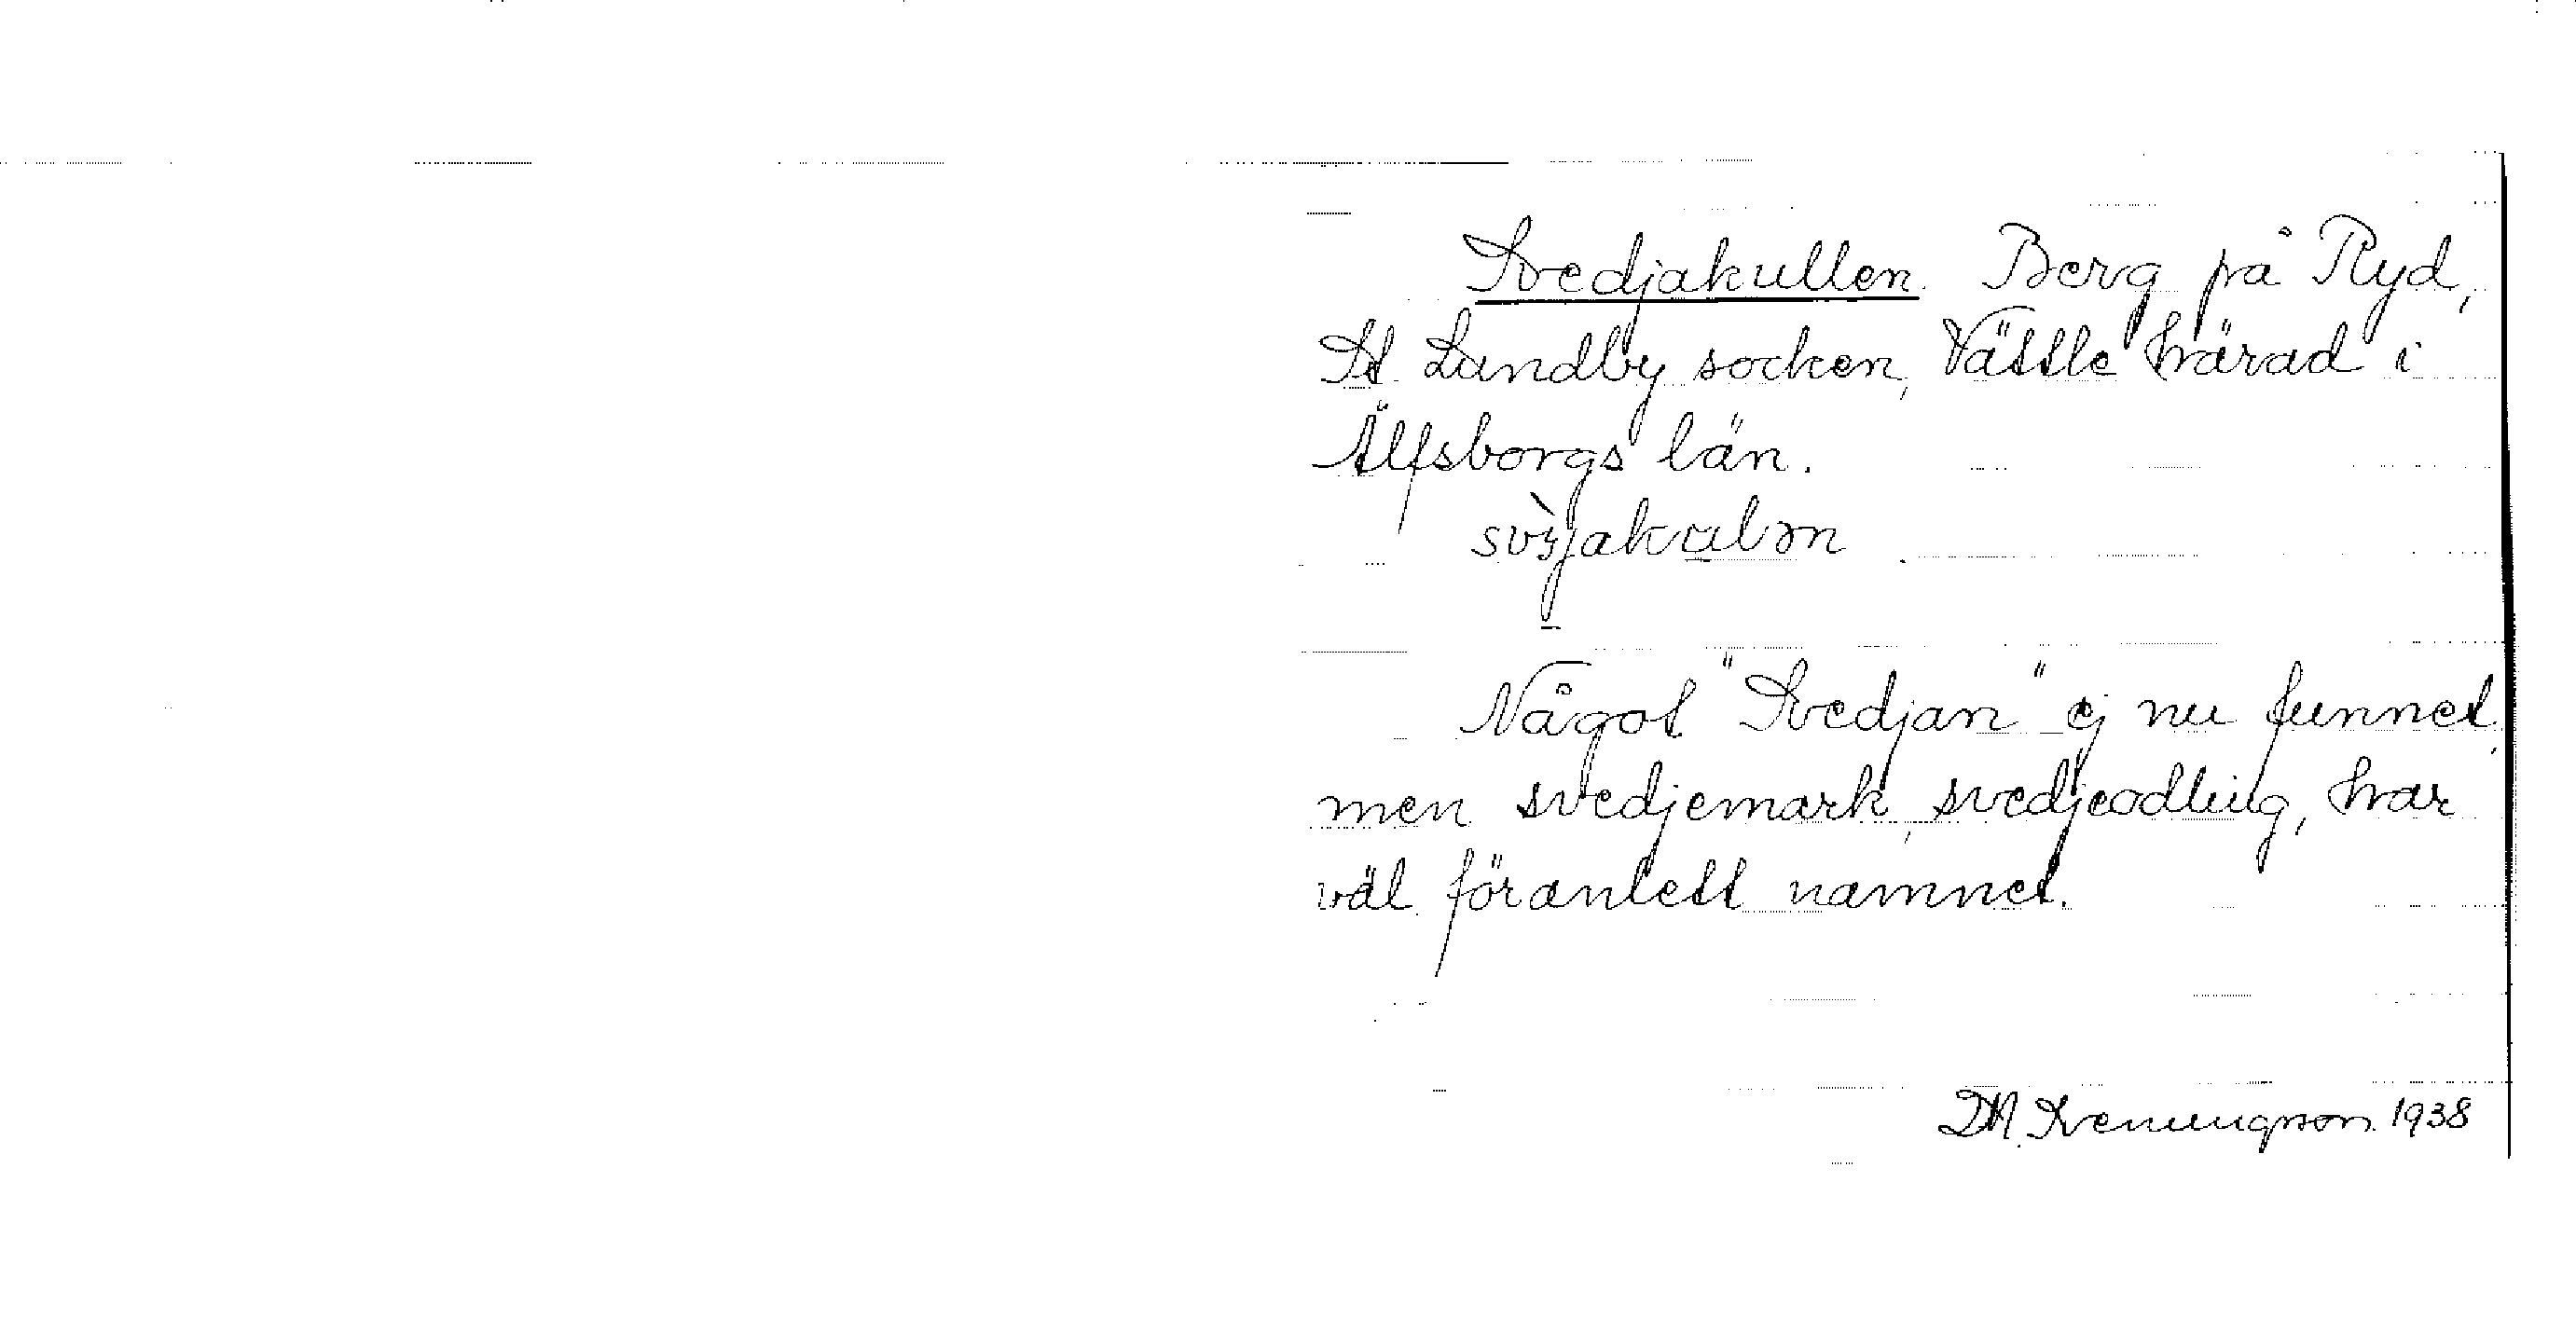 Svedjakullen. Berg på Ryd,
St. Lundby socken, Vättle härad i
Älfsborgs län.
Något "Svedjan" ej nu funnet,
men svedjemark, svedjeodling, har
väl föranlett namnet.
D.N. Svenungsson 1938